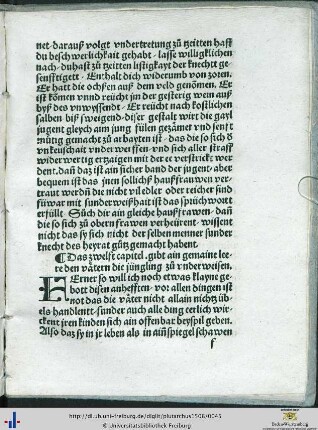 net· darauß volgt vndertretung zů tzeitten hast
du beschwerlichkeit gehabt · lasse willigklichen
nach· du hast zů tzeitten listigkayt der knecht ge
senfftigett · Enthalt dich widerumb von zoren.
Er hatt die ochssen auß dem veld genomen. Er
ist komen vnnd reücht jm der gesterig wein auß
byß des vnwyssendt · Er reücht nach kostlichen
salben biß sweigend· diser gestalt wirt die gayl
jugent gleych aim jung fülen gezämet vnd senft
mütig gemacht zů arbayten ist · das die so sich ð
vnkeuschait vnderwerffen· vnd sich aller straff
widerwertig ertzaigen mit der ee verstrickt wer
dent. dañ daz ist ain sicher band der jugent/ aber
bequem ist das jnen sollichß haußfrauwen ver
traut werdñ die nicht vil edler oder reicher sind
für war mit sunder weißhait ist das sprüchwort
erfült · Sůch dir ain gleiche haußfrawen· dañ
die so sich zů obern frawen verheürent · wissent
nicht das sy sich nicht der selben menner sunder
knecht des heyrat gůtz gemacht habent.
¶ Das zwelfft capitel· gibt ain gemaine lee
re den vätern die jüngling zů vnderweisen.
FErner so will ich noch etwas klayne ge
bott disen anhefften · vor allen dingen ist
not das die väter nicht allain nichtz üb
els handlent/ sunder auch alle ding erlich wir
ckent jren kinden sich ain offenbar beyspil geben.
Also daz sy in jr leben als in aiñ spiegel schawen
f
http://dl.ub.uni-freiburg.de/diglit/plutarchus1508/0045
© Universitätsbibliothek Freiburg